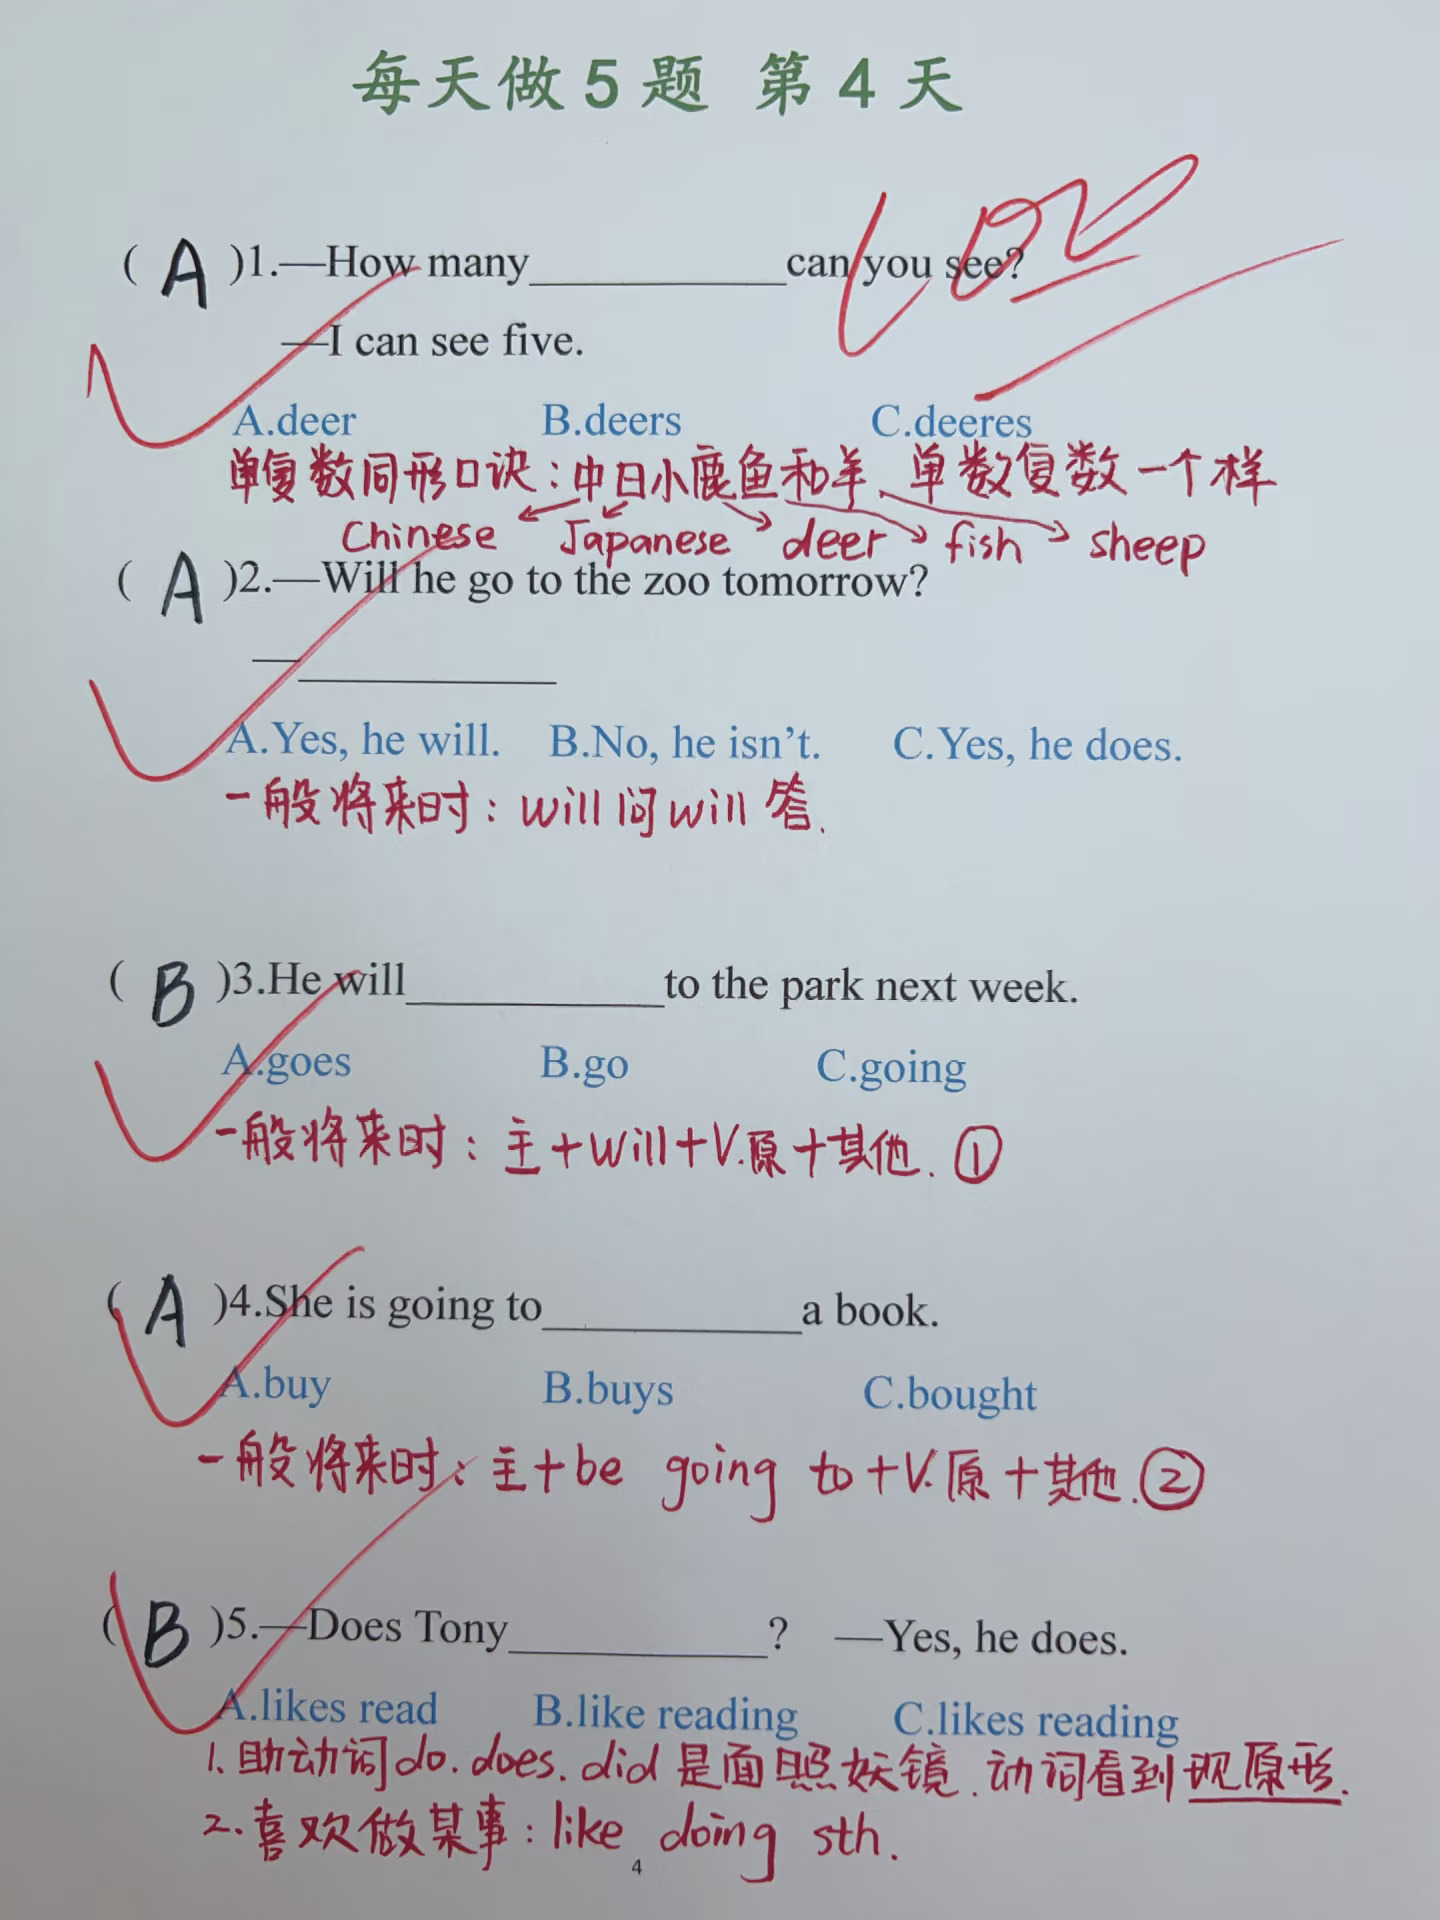 每天做5题 第4天
100
( A )1.—How many__________can you see?
—I can see five.
A.deer B.deers C.deeres
单复数同形口诀:中日小鹿鱼和羊、单数复数一个样
Chinese Japanese deer fish sheep
( A )2.—Will he go to the zoo tomorrow?
—__________
A.Yes, he will. B.No, he isn't. C.Yes, he does.
一般将来时:will问will答.
( B )3.He will__________to the park next week.
A.goes B.go C.going
一般将来时:主+will+V.原+其他.①
( A )4.She is going to__________a book.
A.buy B.buys C.bought
一般将来时:主+be going to+V.原+其他.②
( B )5.—Does Tony__________? —Yes, he does.
A.likes read B.like reading C.likes reading
1.助动词do.does.did是面照妖镜.动词看到现原形.
2.喜欢做某事:like doing sth.
4